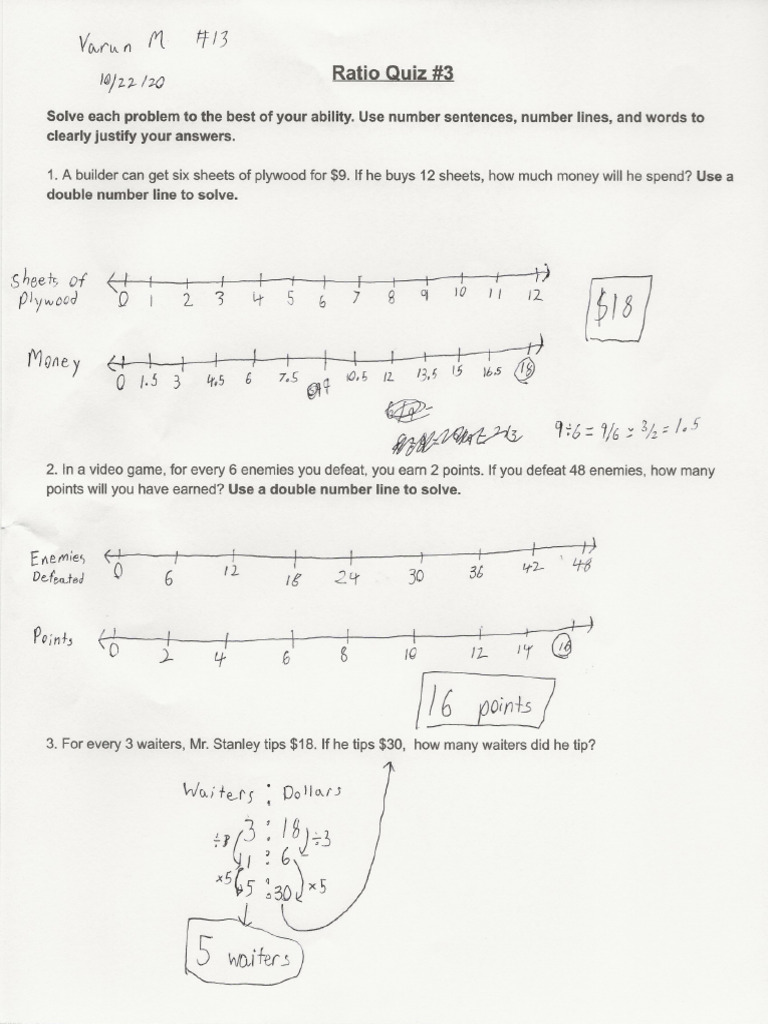 Varun M #13
10/22/20
Ratio Quiz #3
Solve each problem to the best of your ability. Use number sentences, number lines, and words to
clearly justify your answers.
1. A builder can get six sheets of plywood for $9. If he buys 12 sheets, how much money will he spend? Use a
double number line to solve.
Sheets of
Plywood
0 1 2 3 4 5 6 7 8 9 10 11 12
$18
Money
0 1.5 3 4.5 6 7.5 9 10.5 12 13.5 15 16.5 18
9÷6 = 9/6 = 3/2 = 1.5
2. In a video game, for every 6 enemies you defeat, you earn 2 points. If you defeat 48 enemies, how many
points will you have earned? Use a double number line to solve.
Enemies
Defeated
0 6 12 18 24 30 36 42 48
Points
0 2 4 6 8 10 12 14 16
16 points
3. For every 3 waiters, Mr. Stanley tips $18. If he tips $30, how many waiters did he tip?
Waiters : Dollars
÷3 3 : 18 ÷3
1 : 6
×5 5 : 30 ×5
5 waiters